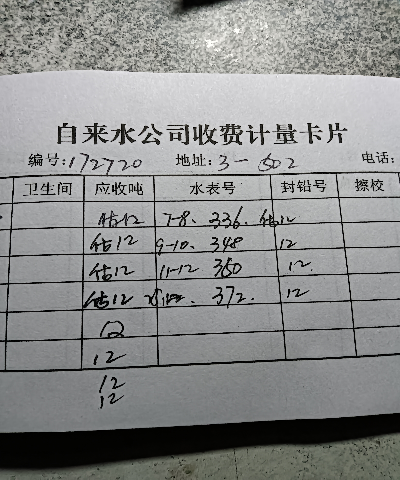 自来水公司收费计量卡片
编号:172720 地址:3-602 电话:
卫生间 应收吨 水表号 封铅号 擦校
估12 7-8. 336. 估12
估12 9-10. 348 12
估12 11-12 360 12.
估12 372. 12
12
12
12
12